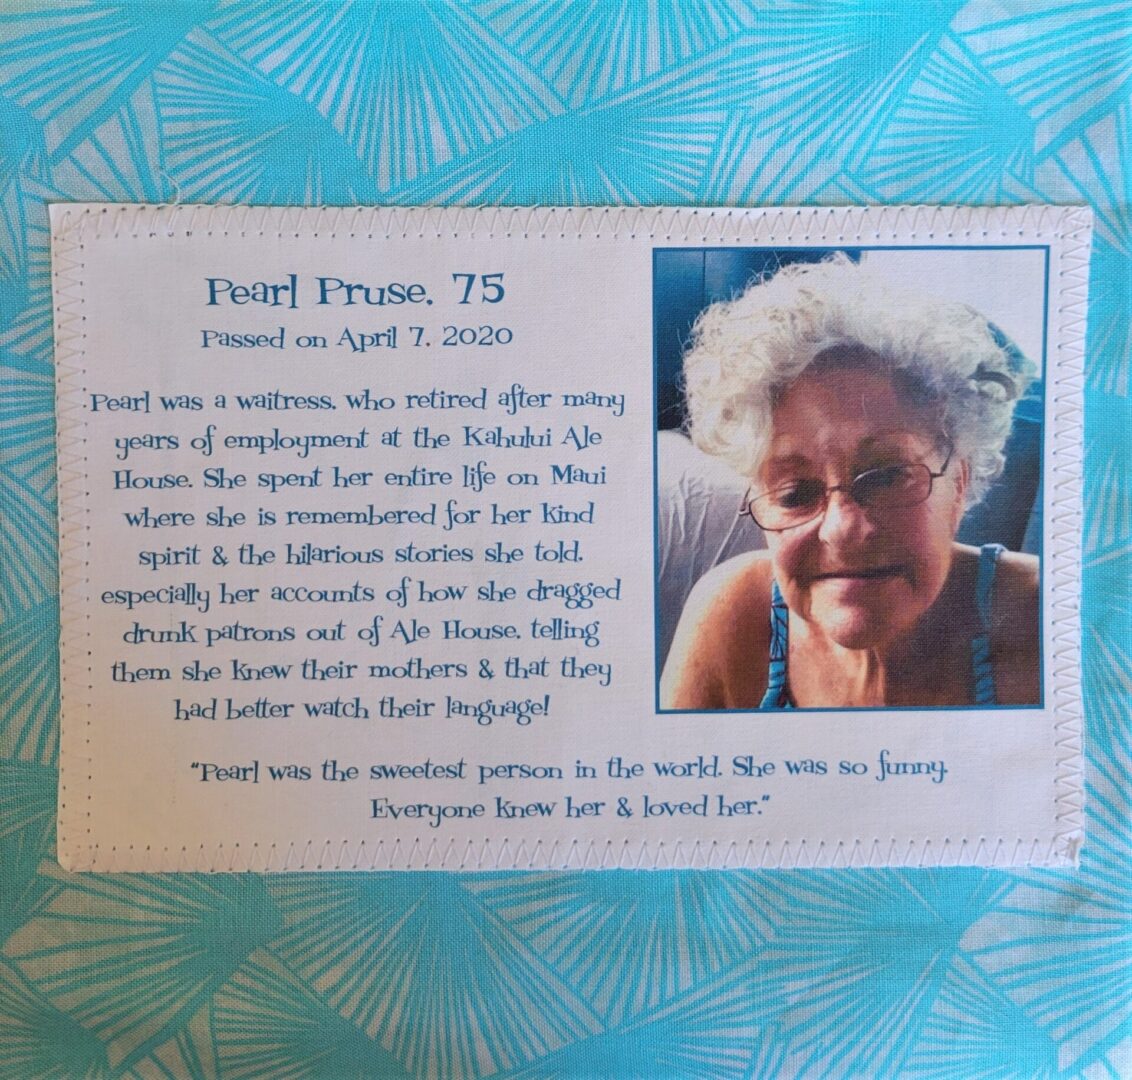 Pearl Pruse, 75
Passed on April 7, 2020
Pearl was a waitress, who retired after many
years of employment at the Kahului Ale
House. She spent her entire life on Maui
where she is remembered for her kind
spirit & the hilarious stories she told,
especially her accounts of how she dragged
drunk patrons out of Ale House, telling
them she knew their mothers & that they
had better watch their language!
"Pearl was the sweetest person in the world. She was so funny.
Everyone knew her & loved her."